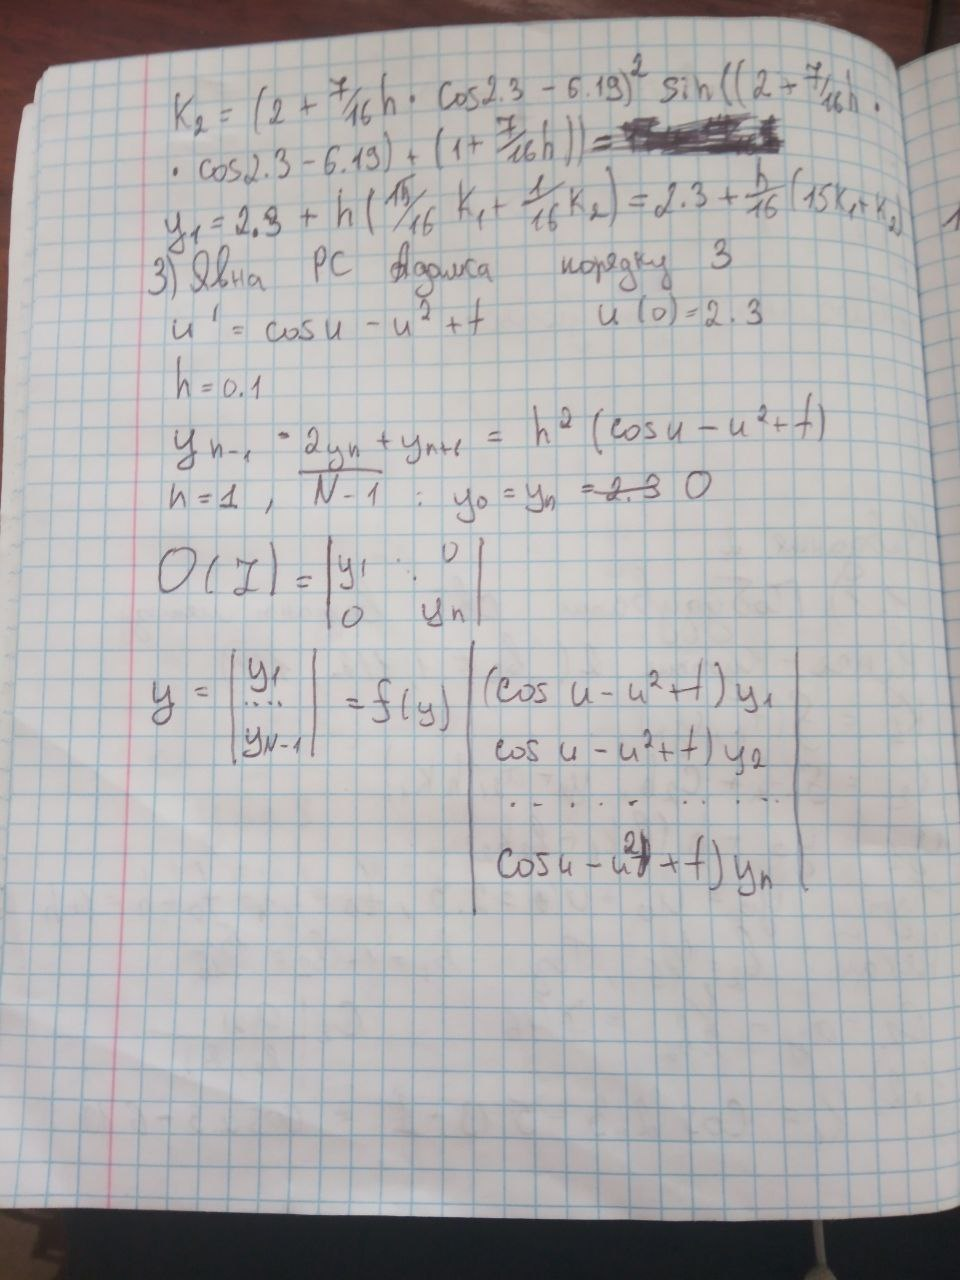 K₂ = (2 + 7/16h · cos2.3 - 6.19)² sin((2 + 7/16h ·
· cos2.3 - 6.19) + (1 + 7/16h)) =
y₁ = 2.3 + h(15/16 K₁ + 1/16 K₂) = 2.3 + h/16 (15K₁ + K₂)
3) Явна РС Адамса порядку 3
u' = cos u - u² + t u(0) = 2.3
h = 0.1
yₙ₋₁ - 2yₙ + yₙ₊₁ = h² (cos u - u² + t)
n = 1, N-1 : y₀ = yₙ = 2.3 0
O(I) = |y₁ ⋱ 0
0 yₙ|
y = |y₁ .... yN-1| = f(y) |(cos u - u² + t) y₁
cos u - u² + t) y₂
. - . . - . . . .
cos u - u² + t) yₙ|
1